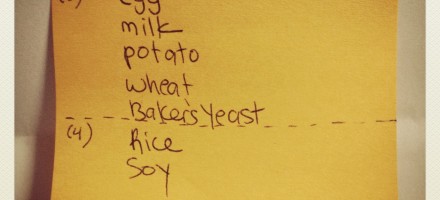 egg
milk
potato
wheat
Baker's Yeast
(4) Rice
Soy